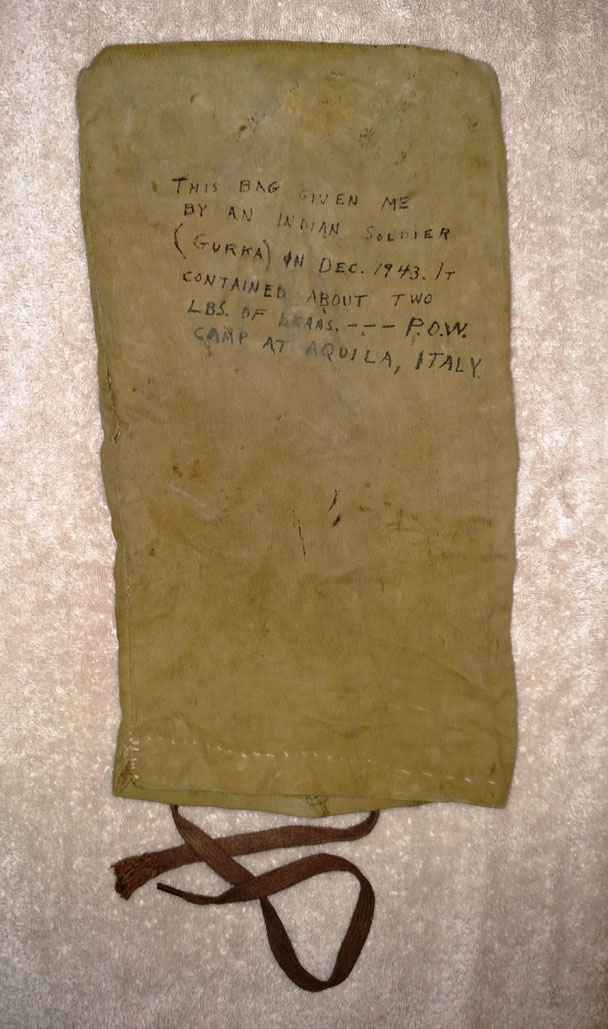 THIS BAG GIVEN ME
BY AN INDIAN SOLDIER
(GURKA) IN DEC. 1943. IT
CONTAINED ABOUT TWO
LBS. OF BEANS. --- P.O.W.
CAMP AT AQUILA, ITALY